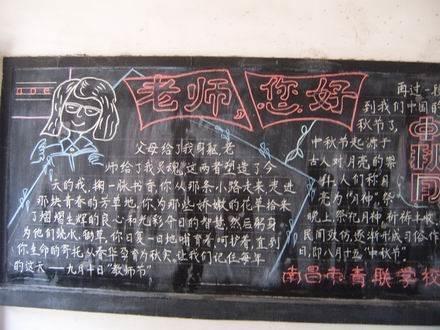 老师,您好
父母给了我身躯,老
师给了我灵魂,这两者塑造了今
天的我,掬一脉书香,你从那条小路走来,走进
那块青春的芳草地,你为那些娇嫩的花草拾来
了熠熠生辉的良心和光彩今日的智慧,然后躬身
为他们浇水、锄草,你日复一日地哺育着呵护着,直到
你生命的寄托,从春华孕育为秋实,让我们记住每年
的这天——九月十日"教师节"
再过一段
到我们中国的
秋节了,
中秋节起源于
古人对月亮的崇
拜,人们称月
亮为"月神",祭
晚上祭祀月神,祈祷丰收
民间效仿,逐渐形成习俗作
日,即八月十五"中秋节"。
中秋
南昌市青联学校